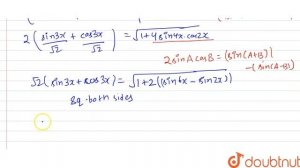 2 ( sin3x/√2 + cos3x/√2 ) = √1+4sin4x.cos2x
2sinAcosB = (sin(A+B)
-(sin(A-B))
√2 (sin3x+cos3x) = √1+2(sin6x - sin2x))
Sq. both sides
doubtnut